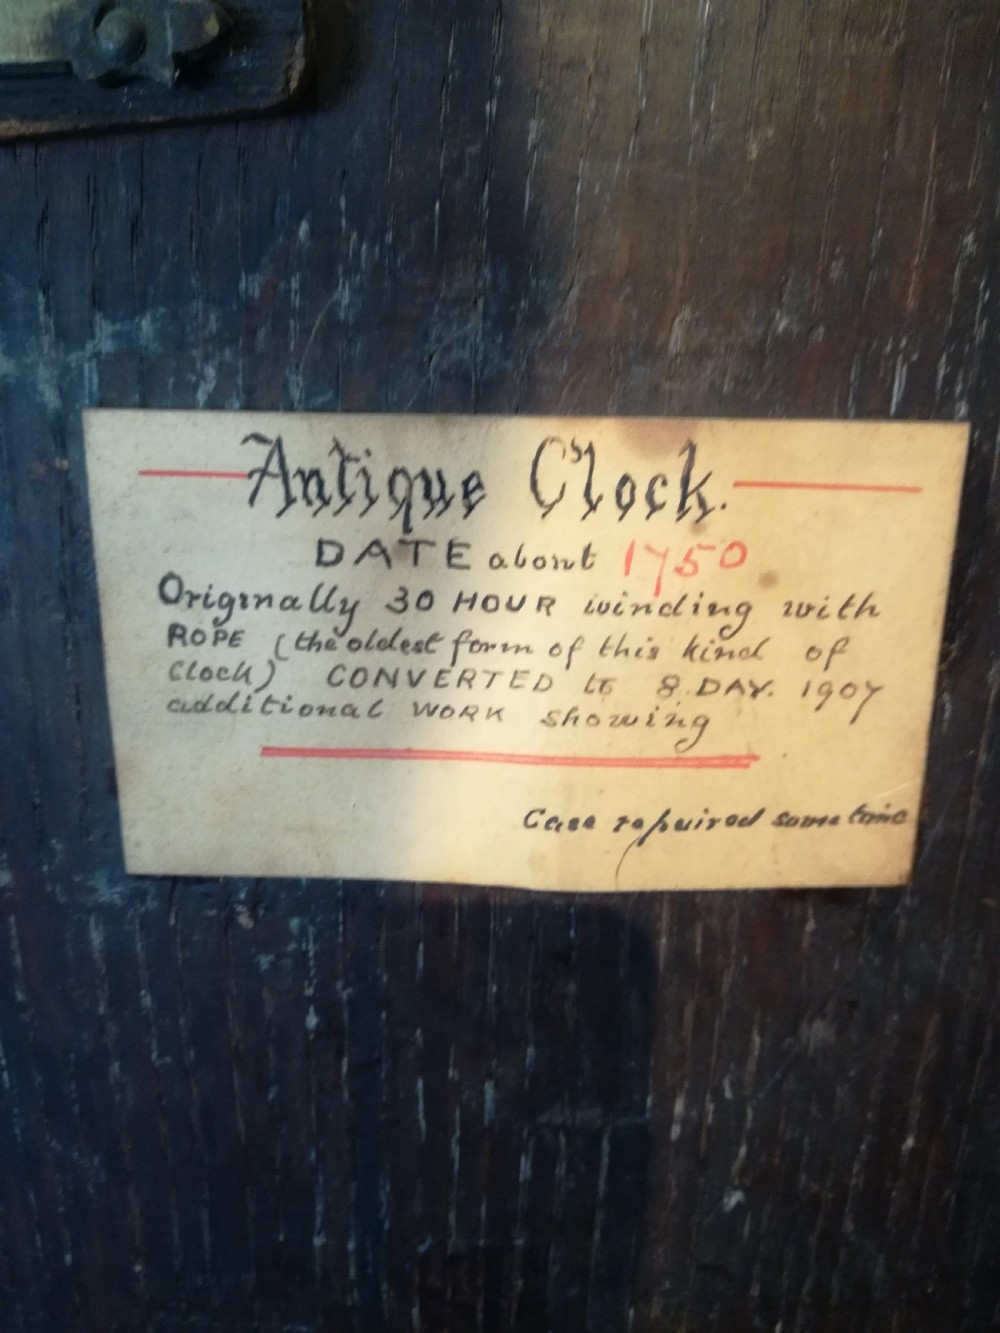 Antique Clock.
DATE about 1750
Originally 30 HOUR winding with
ROPE (the oldest form of this kind of
Clock) CONVERTED to 8.DAY. 1907
additional WORK showing
Case repaired same time